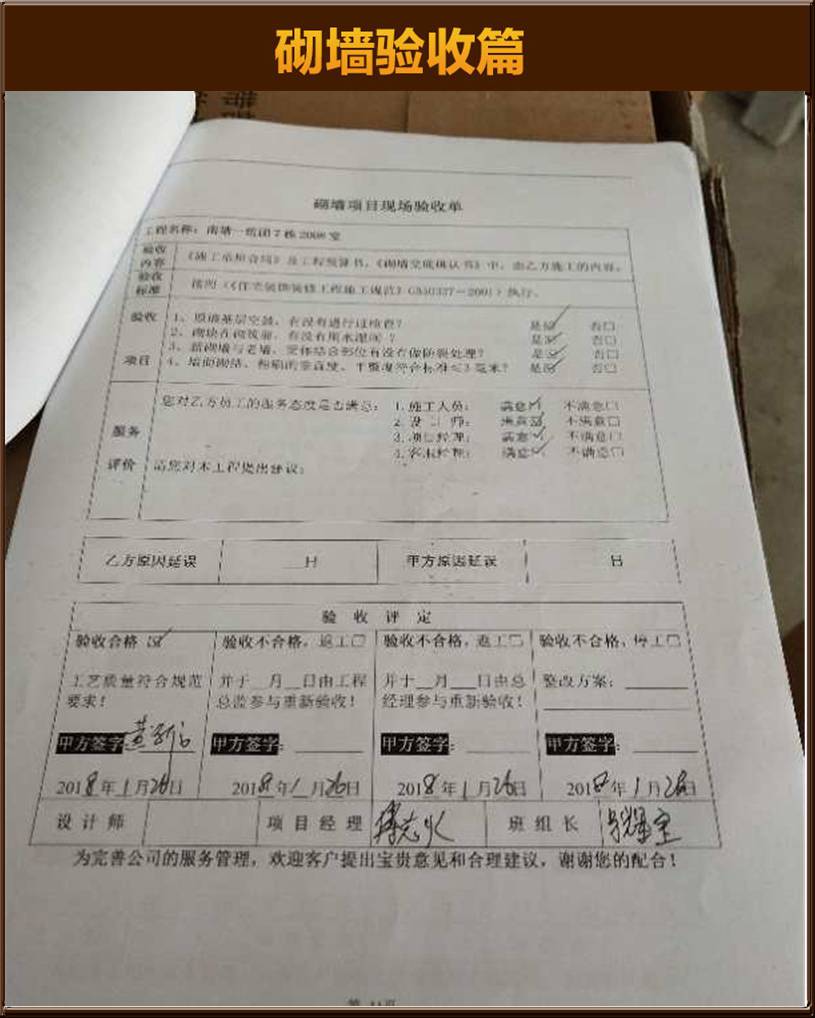 砌墙验收篇
砌墙项目现场验收单
工程名称：南塘一组团7栋2006室
验收内容 《施工承包合同》及工程预算书，《砌墙交底确认书》中，由乙方施工的内容。
验收标准 按照《住宅装饰装修工程施工规范》GB50327—2001）执行。
验收项目
1、原墙基层空鼓，有没有进行过检查？ 是☑ 否□
2、砌块在砌筑前，有没有用水湿润？ 是☑ 否□
3、新砌墙与老墙、梁体结合部位有没有做防裂处理？ 是☑ 否□
4、墙面砌结、粉刷的垂直度、平整度符合标准≤3毫米？ 是☑ 否□
服务评价
您对乙方员工的服务态度是否满意： 1.施工人员： 满意☑ 不满意□
2.设计师： 满意☑ 不满意□
3.项目经理： 满意☑ 不满意□
4.客服经理： 满意☑ 不满意□
请您对本工程提出建议：
乙方原因延误 日 甲方原因延误 日
验收评定
验收合格☑ 验收不合格，返工□ 验收不合格，返工□ 验收不合格、停工□
工艺质量符合规范 并于__月__日由工程 并于__月__日由总 整改方案：
要求！ 总监参与重新验收！ 经理参与重新验收！
甲方签字 甲方签字： 甲方签字： 甲方签字：
2018年1月26日 2018年1月26日 2018年1月26日 2018年1月26日
设计师 项目经理 班组长
为完善公司的服务管理，欢迎客户提出宝贵意见和合理建议，谢谢您的配合！